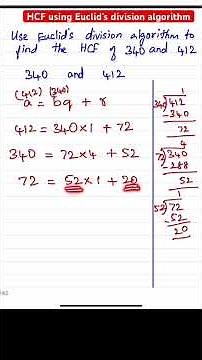 HCF using Euclid's division algorithm
Use Euclid's division algorithm to
find the HCF of 340 and 412
340 and 412
(412) (340)
a = bq + r
412 = 340 x 1 + 72
340 = 72 x 4 + 52
72 = 52 x 1 + 20
1
340) 412
-340
72
4
72) 340
-288
52
1
52) 72
-52
20